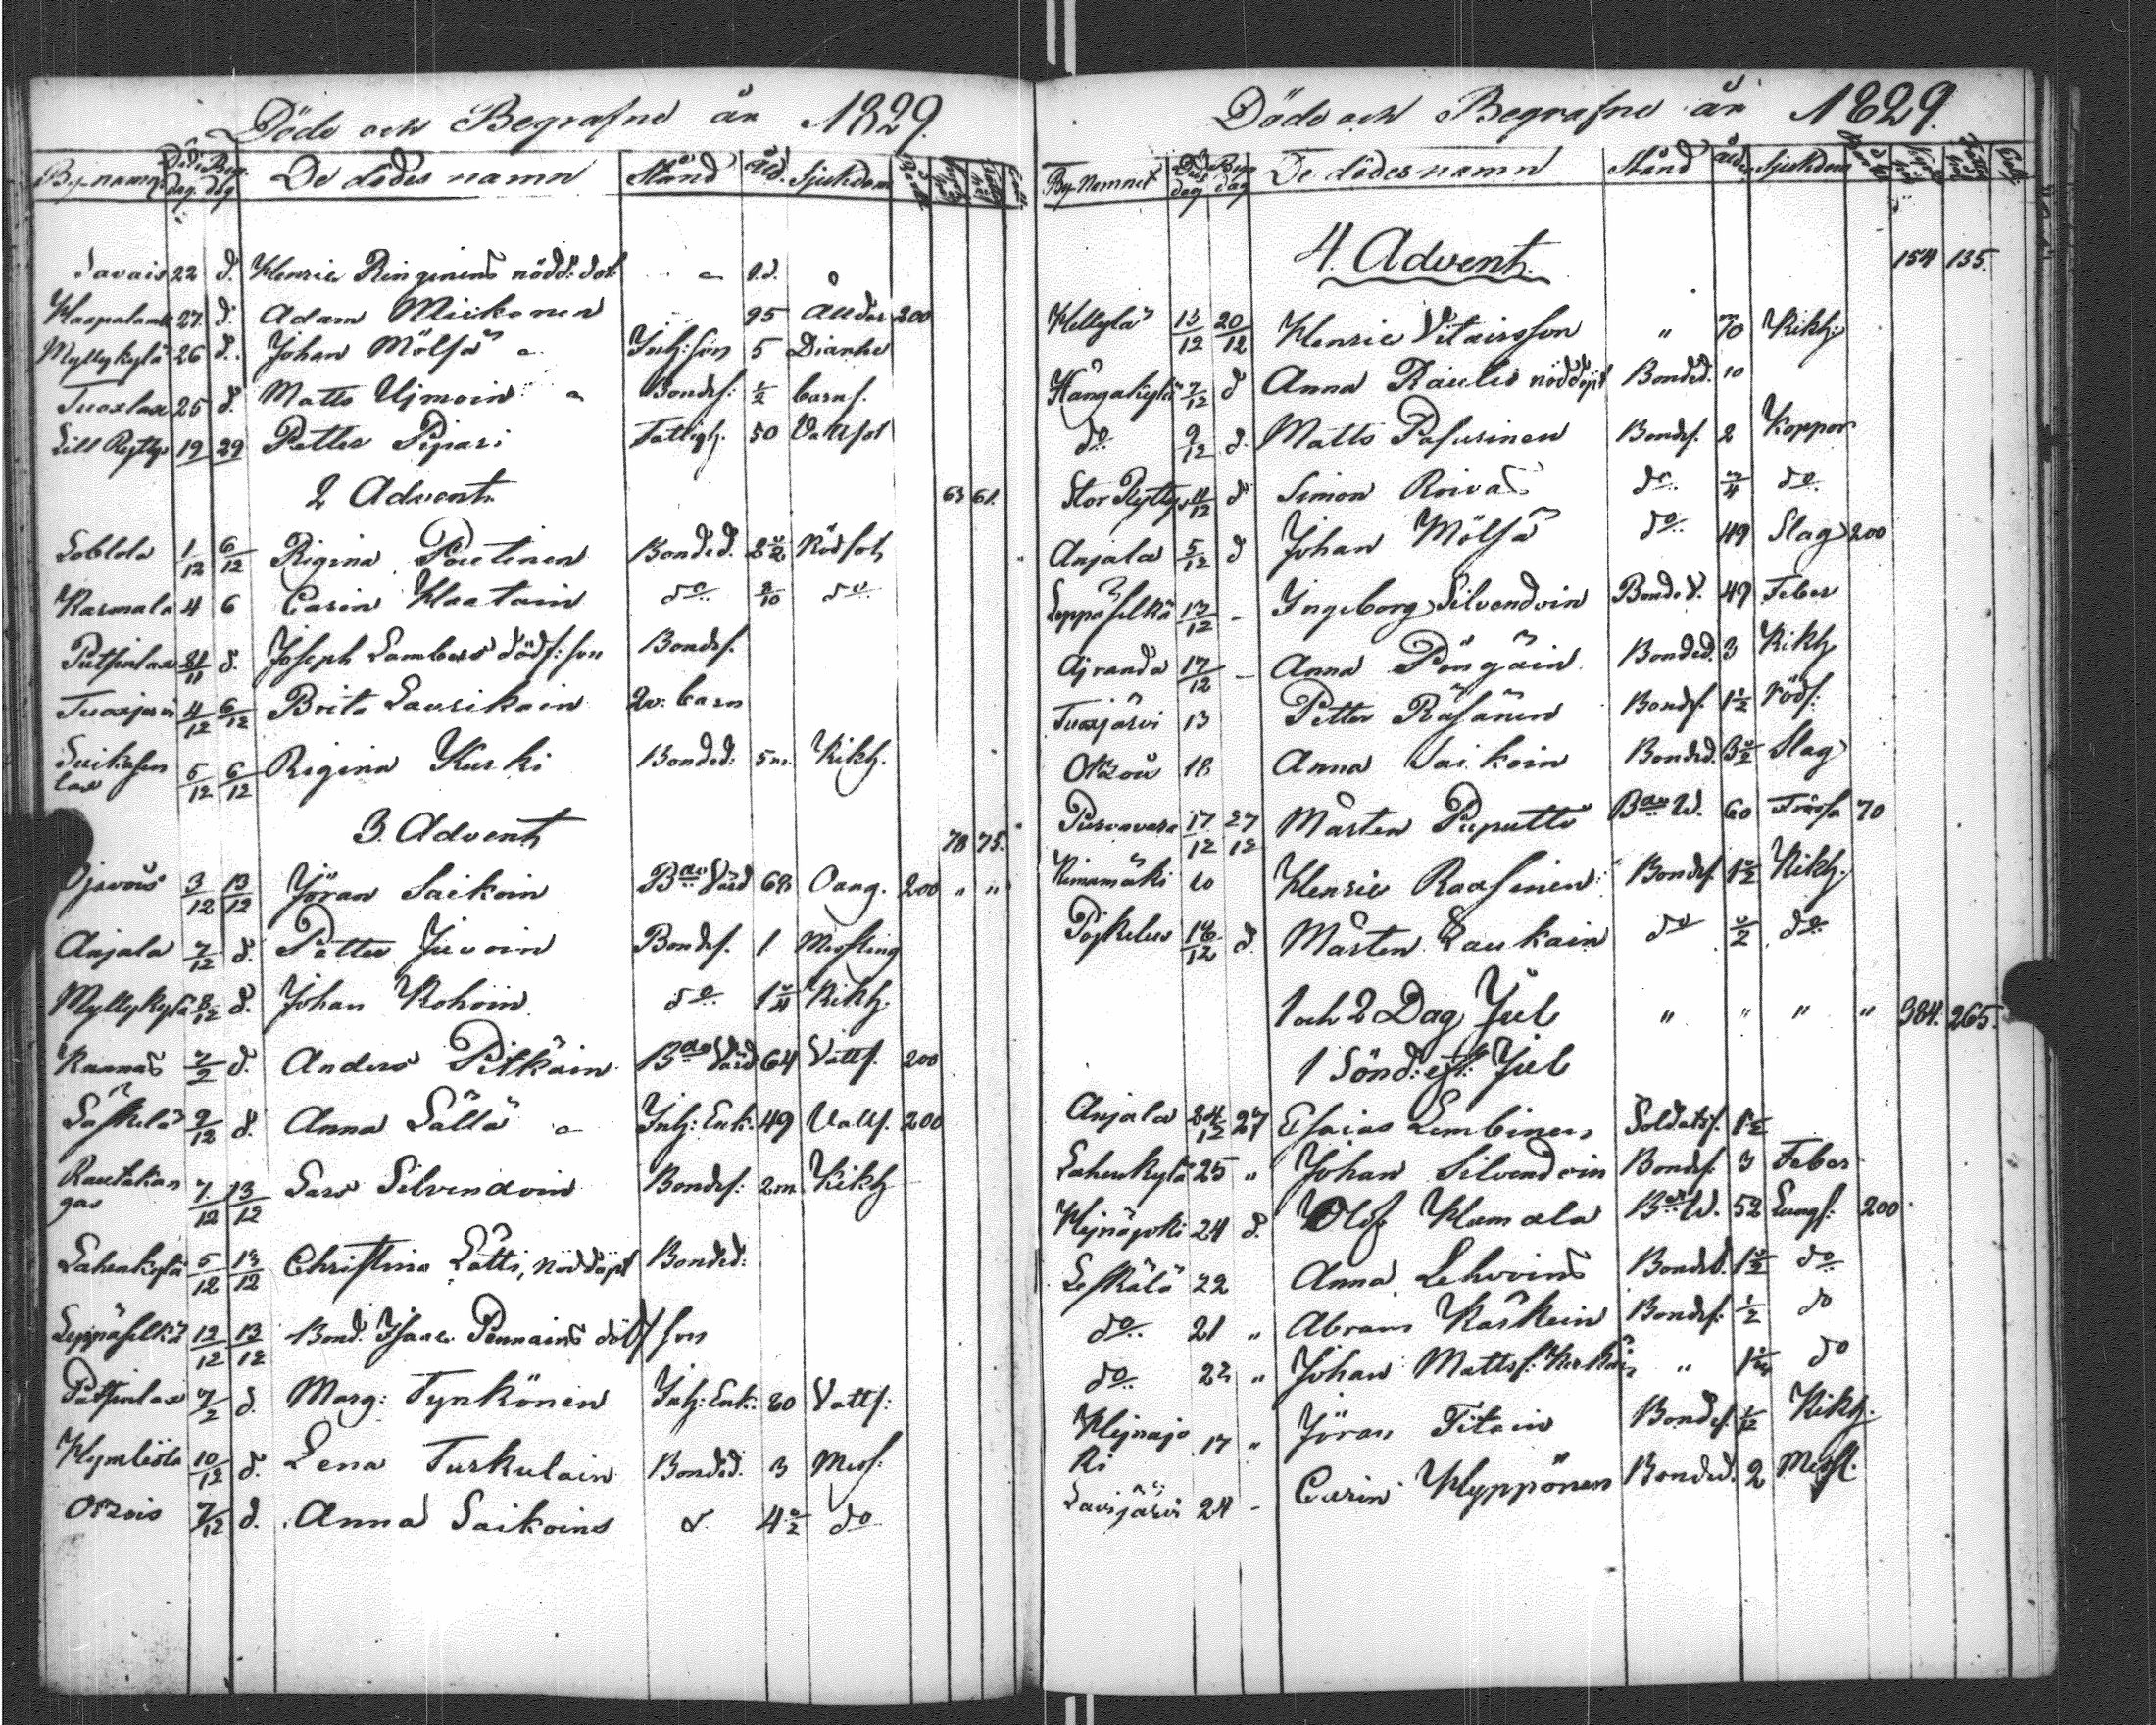 Döde och Begrafne år 1829.
By-namn Död. dag. Begr. dag De dödes namn Stånd Åld. Sjukdom
Savais 22 d. Henric Ringinens nödd: dot. " 1.d.
Haapalamb 27. d. Adam Miikonen 95 Ålldor 200
Myllykylä 26 d. Johan Mölsä Inh: son 5 Diarhe
Tuoxlax 25 d. Matts Ujmoin Bondes: ½ barns.
Lill Rytty 19 29 Petter Pipari Fattigh. 50 Vattsot
2 Advent. 63 61.
Loblola 1/12 6/12 Rigina Poutinen Bonded. 2 v/2 Rödsot
Karmala 4 6 Carin Haatain do 8/10 do
Putsinlax 31/11 d. Joseph Lambers dödf: son Bondes.
Tuoxjervi 4/12 6/12 Brita Laurikain 2v: barn
Suikasen lax 5/12 6/12 Rigina Kurki Bonded: 5m. Kikh.
3. Advent 78 75.
Ojavois 3/12 13/12 Jöran Saikoin B:de Värd 68 Oang. 200 " "
Anjala 7/12 d. Petter Juvoin Bondes. 1 Messling
Myllykylä 8/12 d. Johan Kohoin do 1 v/4 Kikh.
Kannas 7/2 d. Anders Pitkäin B:de Värd 64 Vatts. 200
Läskelä 9/12 d. Anna Lällä Inh: Enk. 49 Vatts. 200
Rautakangas 7/12 13/12 Lars Silvendoin Bondes: 2m. Kikh
Lahenkylä 5/12 13/12 Christina Lätti, nöddöpt Bonded:
Leppäselkä 12/12 13/12 Bond. Isaac Pennains döds son
Putsinlax 7/2 d. Marg: Tynkönen Inh: Enk. 80 Vatts:
Hymlistä 10/12 d. Lena Turkulain Bonded. 3 Mess:
Otrois 7/12 d. Anna Saikoins d. 4 v/2 do
Döde och Begrafne år 1829.
By-Namnet Död dag Begr dag De dödes namn Stånd Ålder Sjukdom
4. Advent. 154 135.
Hellylä 13/12 20/12 Henric Vitairsson " 70 Kikh:
Kängakylä 7/12 d Anna Raulis nöddöpt Bonded. 10
do 9/12 d. Matts Pasurinen Bondes. 2 Koppor
Stor Rytty 11/12 d Simon Roivas do 3/4 do
Anjala 5/12 d Johan Mölsä do 49 Slag 200
Leppäselkä 13/12 - Ingeborg Silvendoin Bonded. 49 Feber
Ajranda 17/12 - Anna Pöngäin Bonded. 3 Kikh
Tuoxjärvi 13 Petter Räsänen Bondes. 1½ röds:
Otzou 18 Anna Saikoin Bonded. 3 v/2 Slag
Pursavara 17/12 27/12 Mårten Piiputti B:de W. 60 Frossa 70
Kimamäki 20 Henric Raasinen Bondes. 1 v/2 Kikh.
Pojkelus 16/12 d. Mårten Laukain do v/2 do
1 och 2 Dag Jul " " " " 384. 265.
1 Sönd: eft: Jul
Anjala 24/12 27 Esaias Lembinen Soldats. 1½
Lahenkylä 25 " Johan Silvendoin Bondes: 3 Feber
Hejnäjoki 24 d. Olof Humala B:de W. 52 Lungs: 200
Leskälä 22 Anna Lehvoins Bonded. 1 v/2 do
do 21 " Abram Karkein Bondes: ½ do
do 22 " Johan Matts: Karkäin " do
Hejnajoki 17 " Jöran Titoin Bondes. 1/12 Kikh.
Lavijärvi 24 - Carin Hyppönen Bonded. 2 Messl.